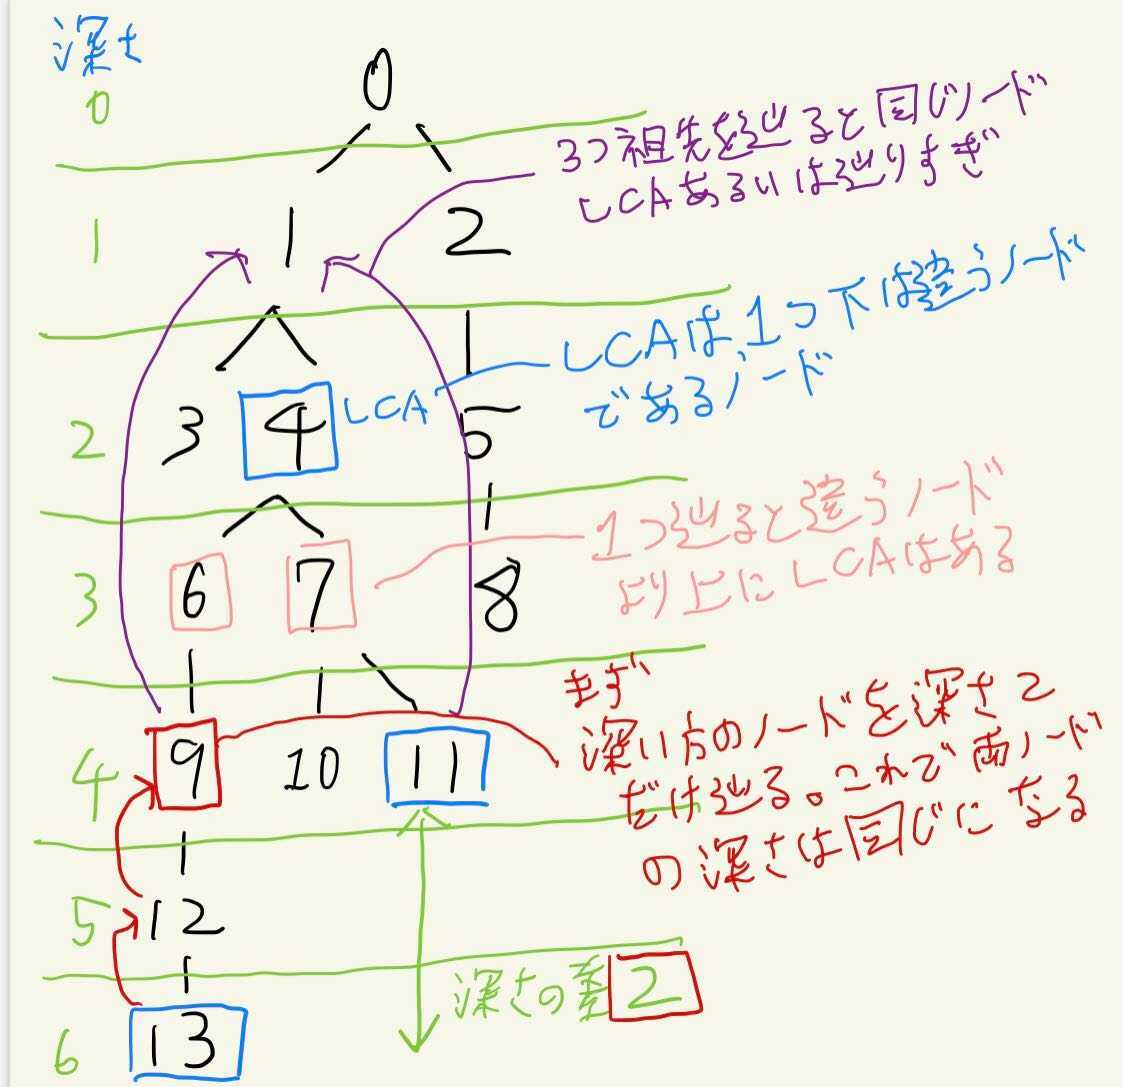 深さ
0
0
3つ祖先を辿ると同じノード
LCAあるいは辿りすぎ
1
1 2
LCAは、1つ下は違うノード
であるノード
2
3 4 LCA 5
1つ辿ると違うノード
より上にLCAはある
3
6 7 8
まず
深い方のノードを深さ2
だけ辿る。これで両ノード
の深さは同じになる
4
9 10 11
5
12
深さの差 2
6
13